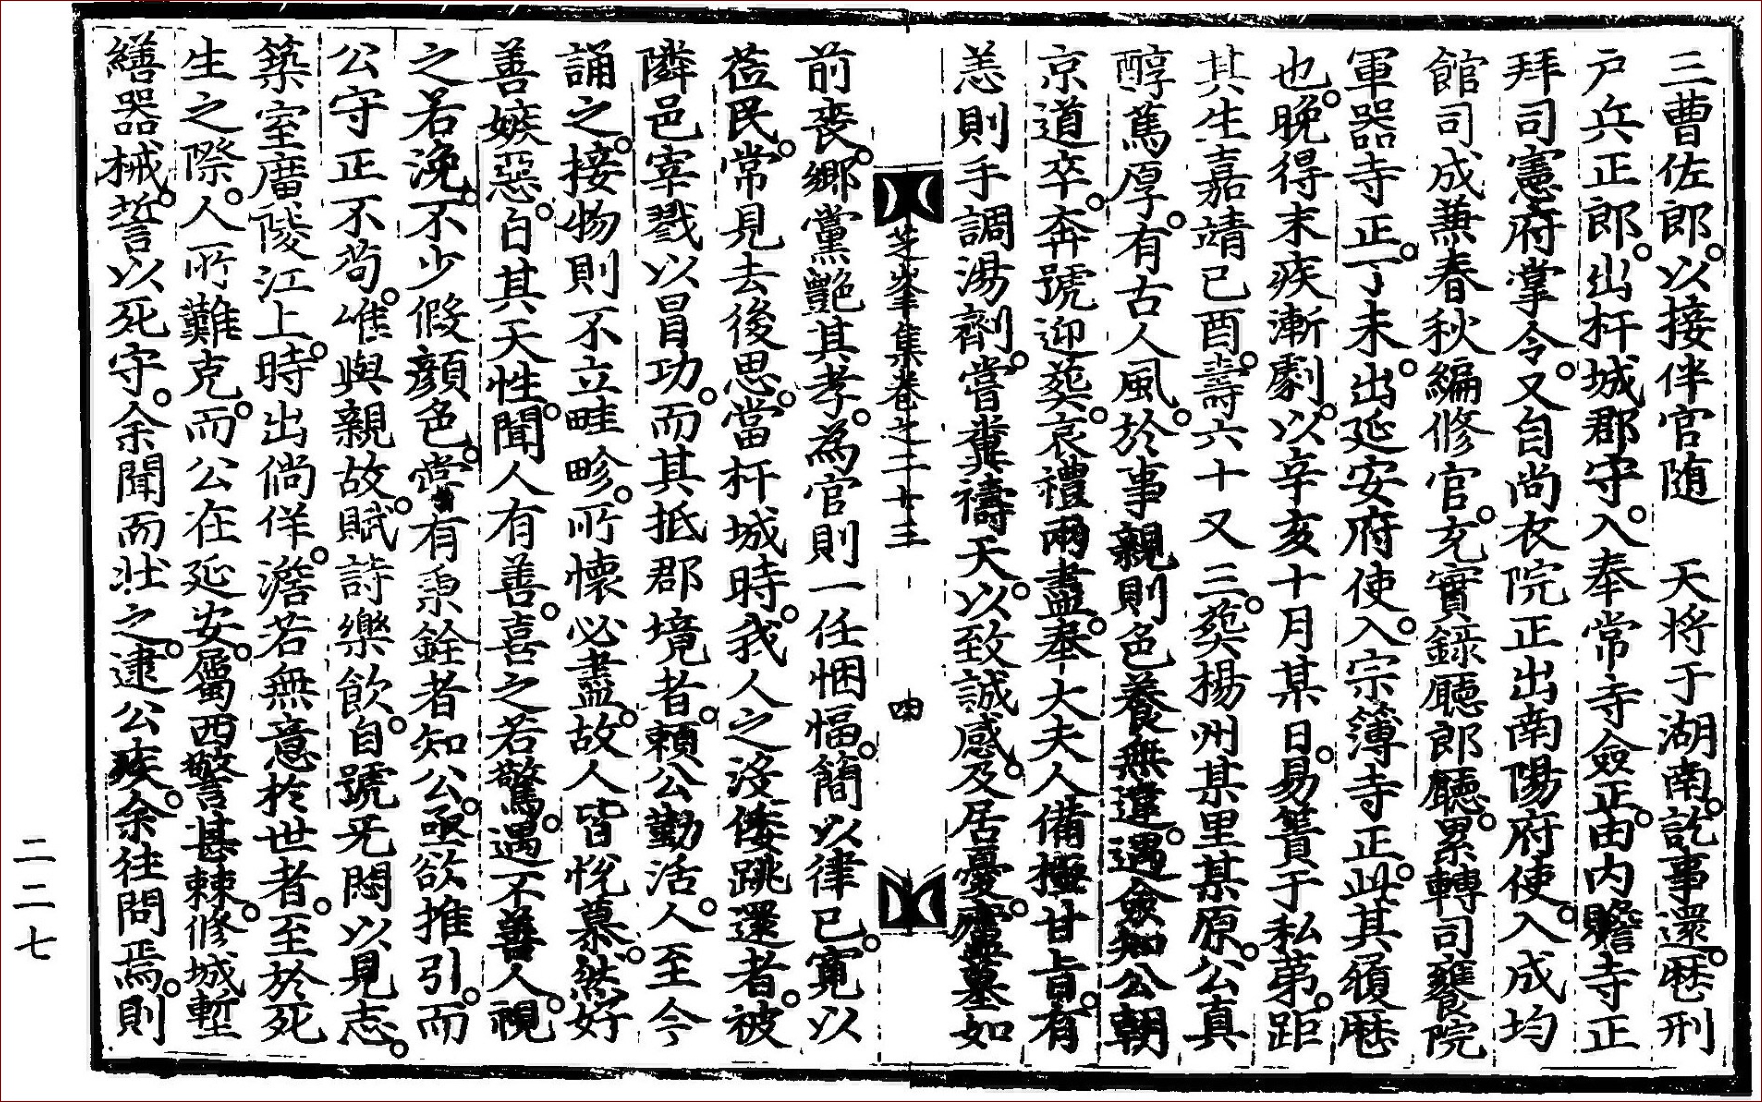 三曹佐郎以接伴官随 天將于湖南訖事還歴刑
戶兵正郎出杆城郡守入奉常寺僉正由内贍寺正
拜司憲府掌令又自尚衣院正出南陽府使入成均
館司成兼春秋編修官充實錄廳郎廳累轉司饔院
軍器寺正丁未出延安府使入宗簿寺正此其履歴
也晚得末疾漸劇以辛亥十月某日易簀于私第距
其生嘉靖己酉壽六十又三葬楊州某里某原公眞
醇篤厚有古人風於事親則色養無違遇僉知公朝
京道卒奔號迎葬哀禮兩盡奉大夫人備極甘旨有
恙則手調湯劑嘗糞禱天以致誠感及居憂廬墓如
芝峯集卷之二十三
四
前喪鄉黨艶其孝為官則一任悃愊簡以律己寬以
莅民常見去後思當杆城時我人之沒倭跳還者被
隣邑宰戮以冒功而其抵郡境者頼公勤活人至今
誦之接物則不立畦畛所懷必盡故人皆悅慕然好
善嫉惡自其天性聞人有善喜之若驚遇不善人視
之若浼不少假顏色嘗有秉銓者知公亟欲推引而
公守正不苟唯與親故賦詩樂飲自號无悶以見志
築室廣陵江上時出倘佯澹若無意於世者至於死
生之際人所難克而公在延安屬西警甚棘修城塹
繕器械誓以死守余聞而壯之逮公疾余往問焉則
二二七